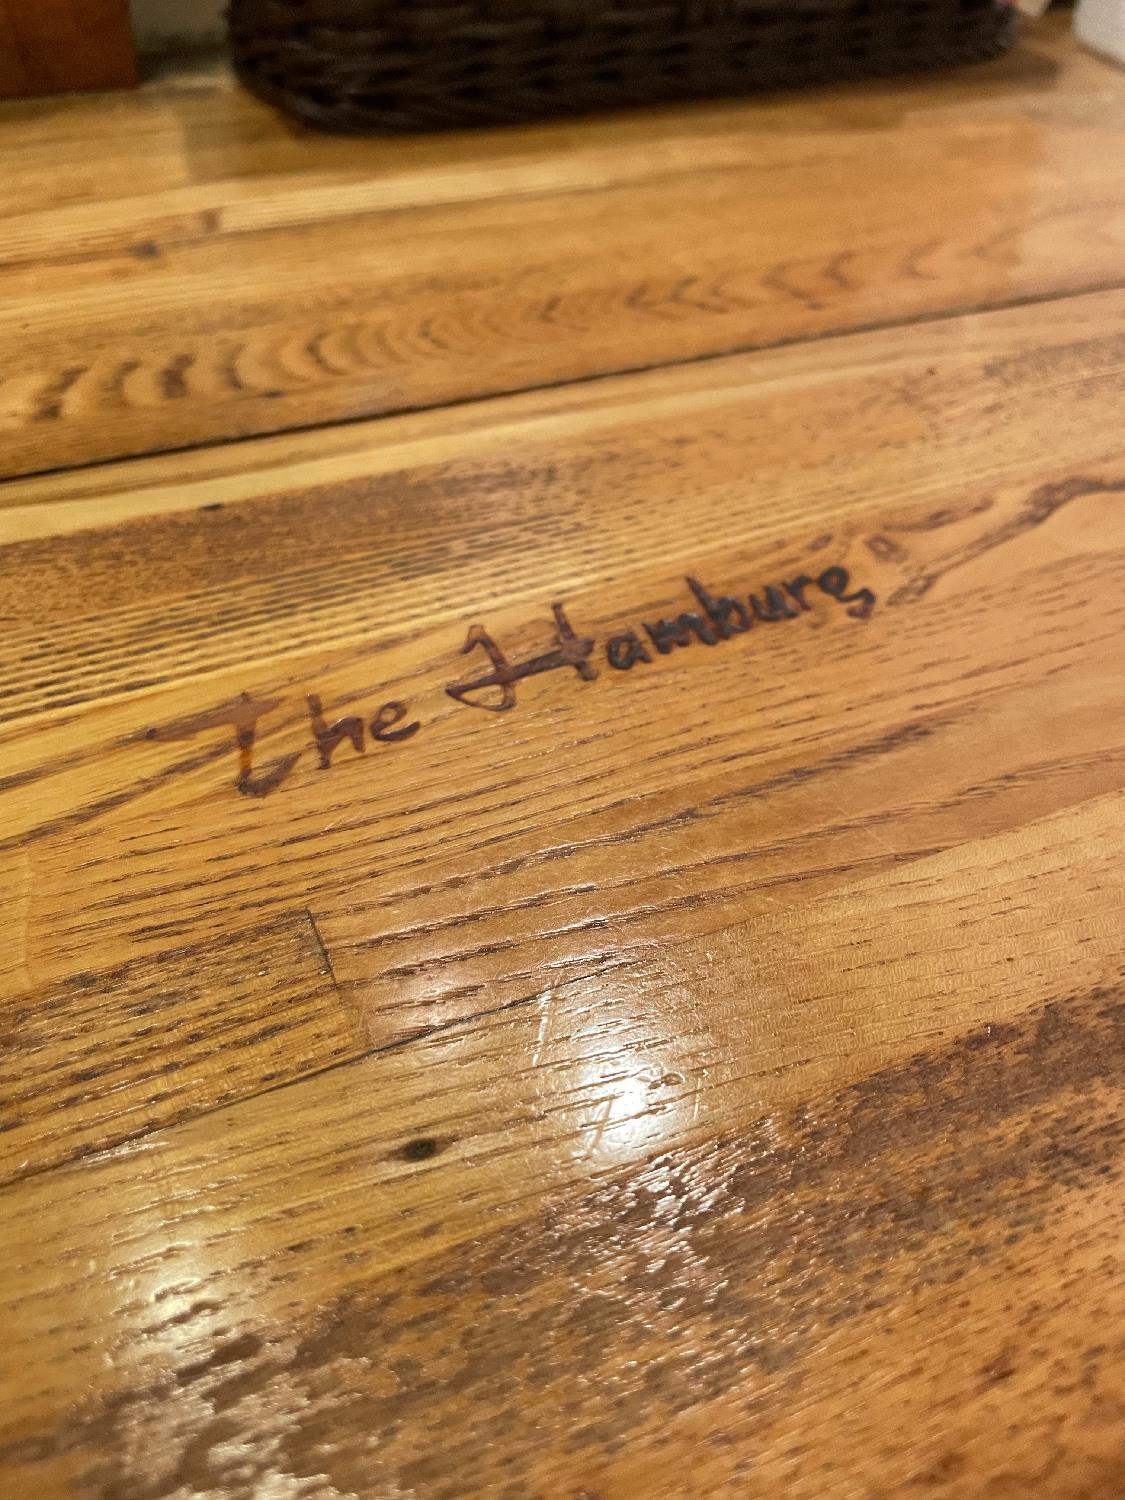 The Hamburg